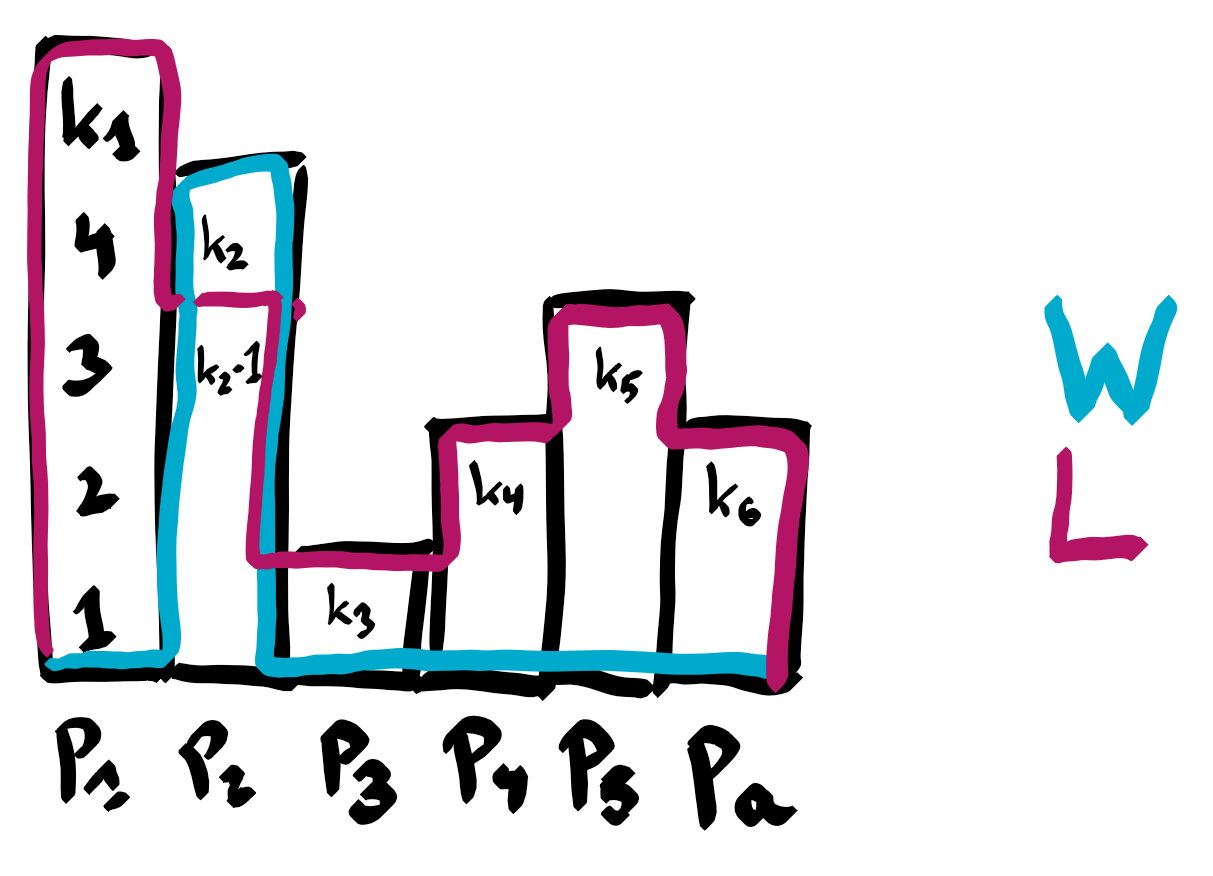 k1
4
3
2
1
k2
k2-1
k3
k4
k5
k6
W
L
P1 P2 P3 P4 P5 Pa